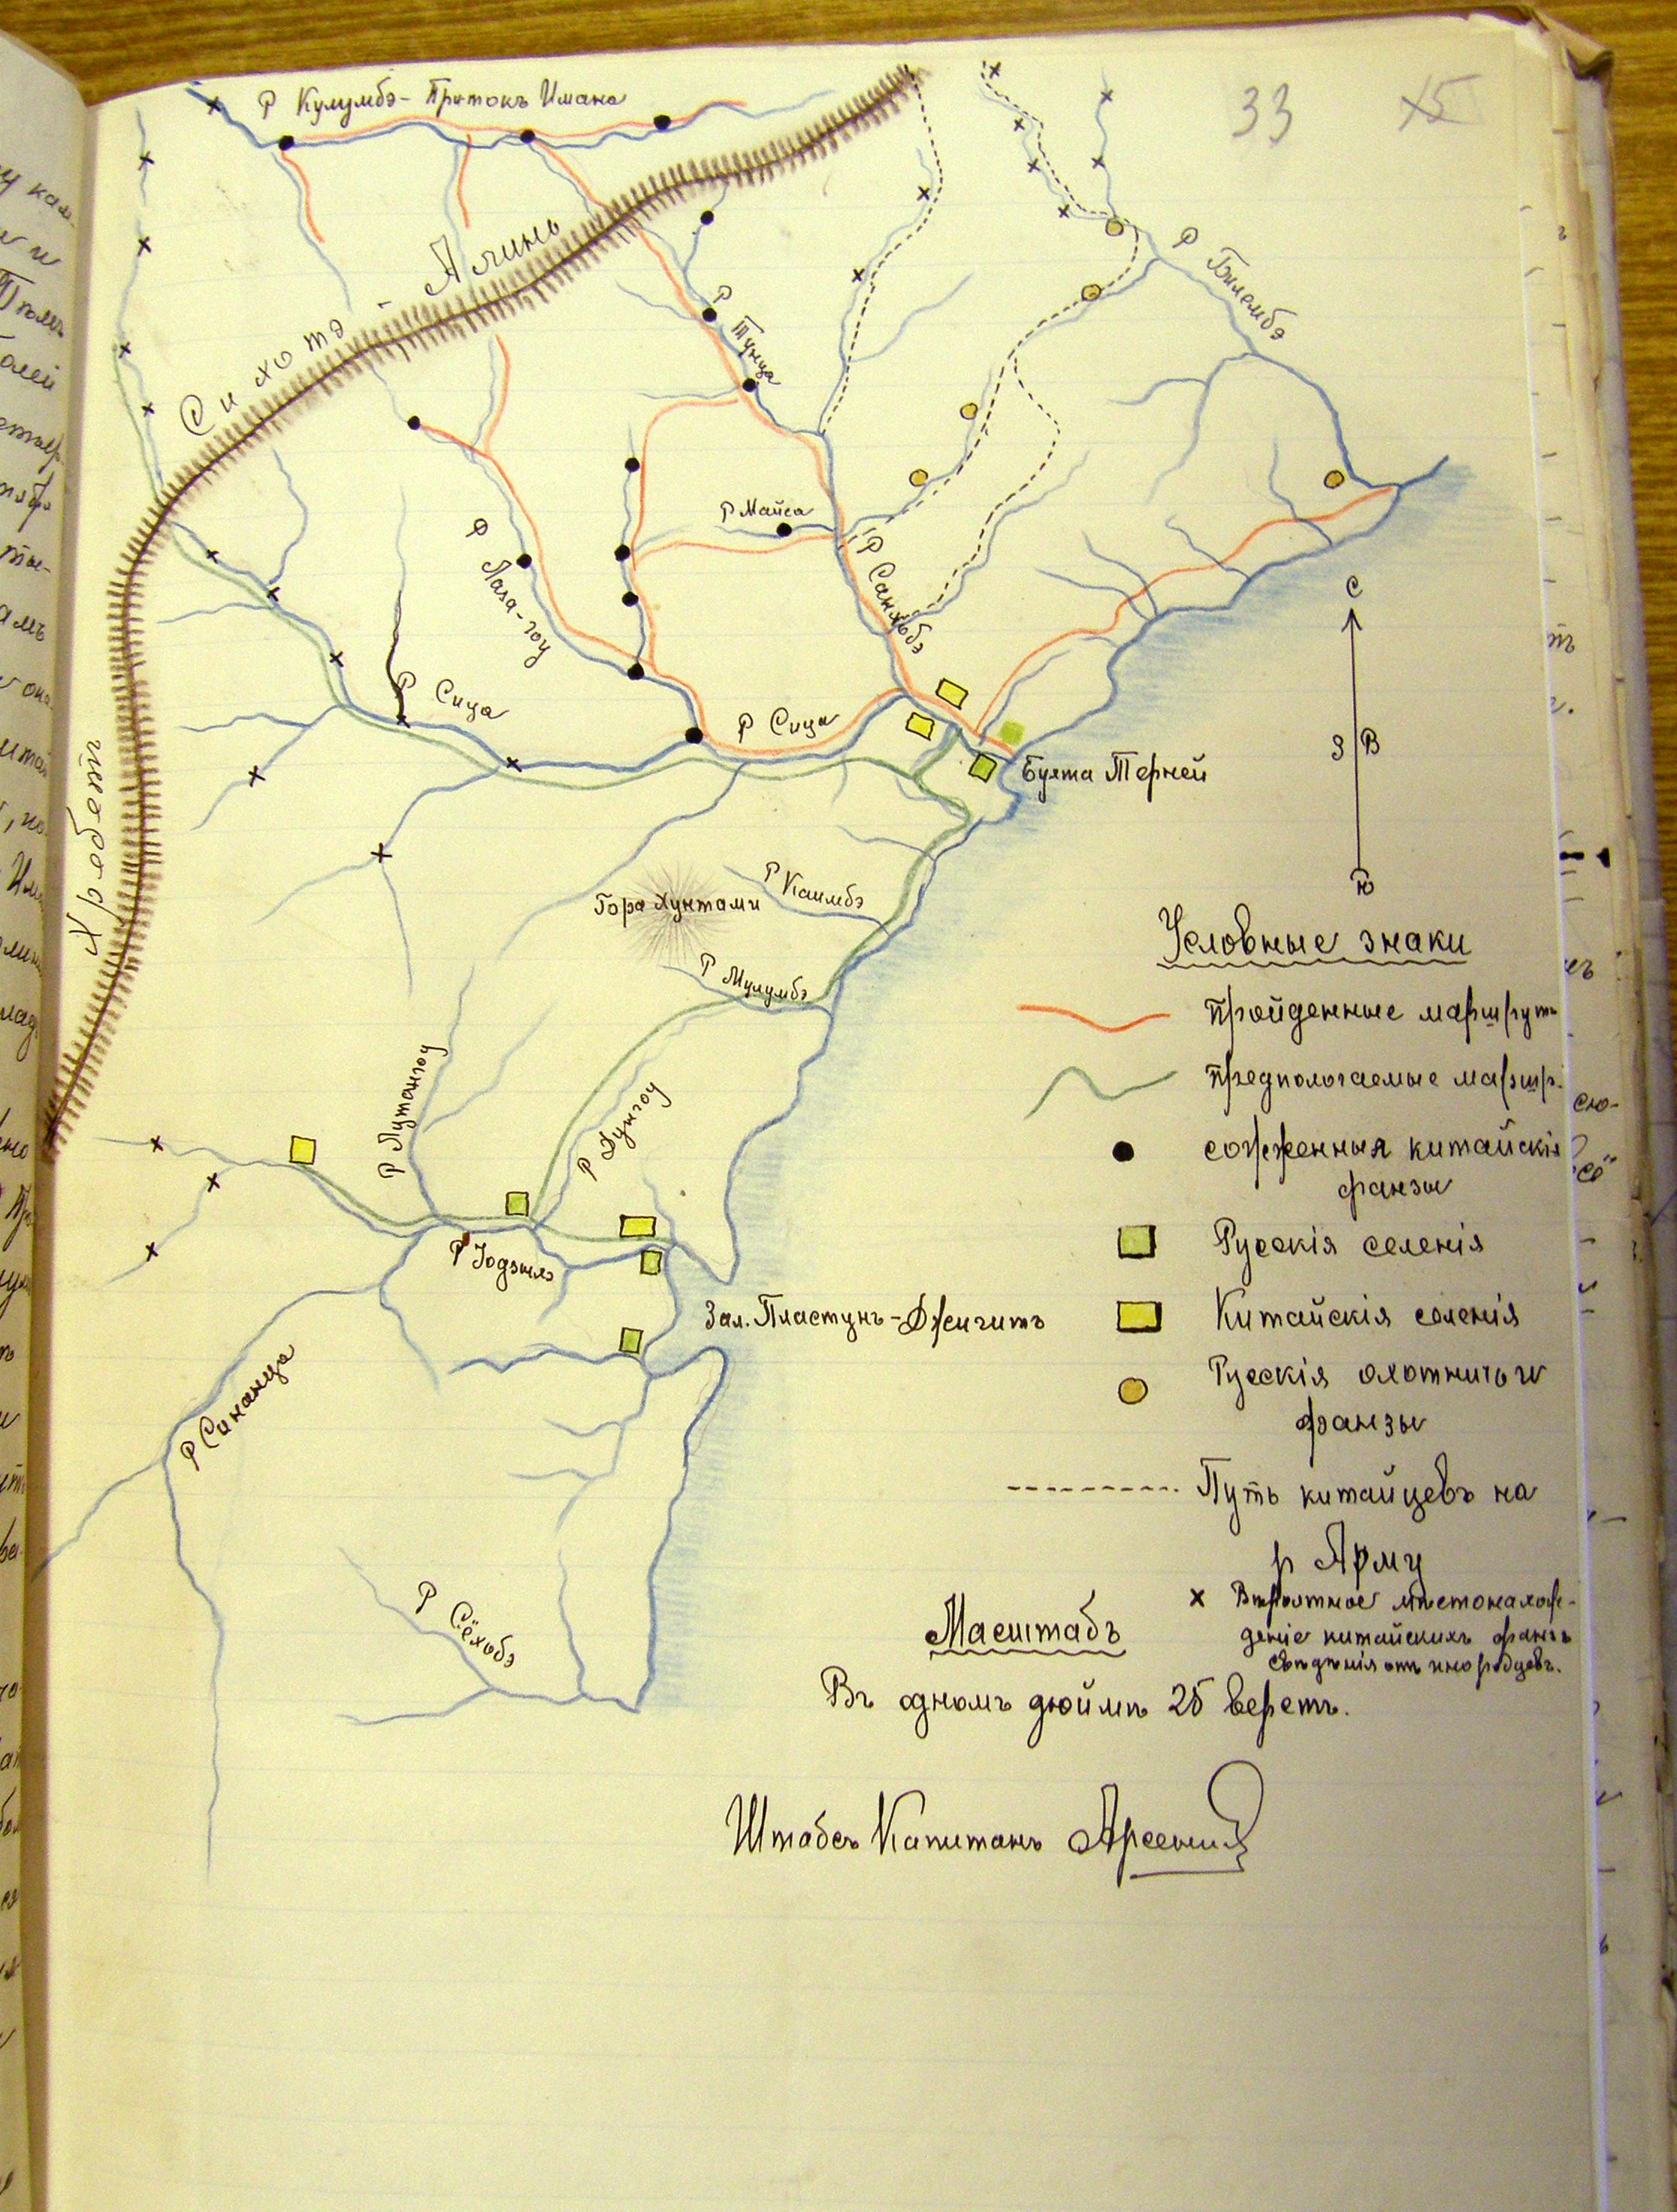 33
15
Р Кулумбэ - Притокъ Имана
Хребетъ Сихотэ - Алинь
Р Билембэ
Р Тунца
Р Майса
Р Санхобэ
Р Лаза-гоу
Р Сица
Р Сица
С
З В
Ю
Бухта Терней
Гора Хунтами
Р Каимбэ
Р Мулумбэ
Р Лутангоу
Р Дунгоу
Р Іодзыхэ
Зал. Пластунъ-Джигитъ
Р Синанца
Р Сёхобэ
Условные знаки
Пройденные маршруты
Предпологаемые маршр.
сожженныя китайскія
фанзы
Русскія селенія
Китайскія селенія
Русскія охотничьи
фанзы
Путь китайцевъ на
р Арму
x Вѣроятное мѣстонахож-
деніе китайскихъ фанзъ
свѣдѣнія отъ инородцевъ.
Масштабъ
Въ одномъ дюймѣ 25 верстъ.
Штабсъ Капитанъ Арсеньев